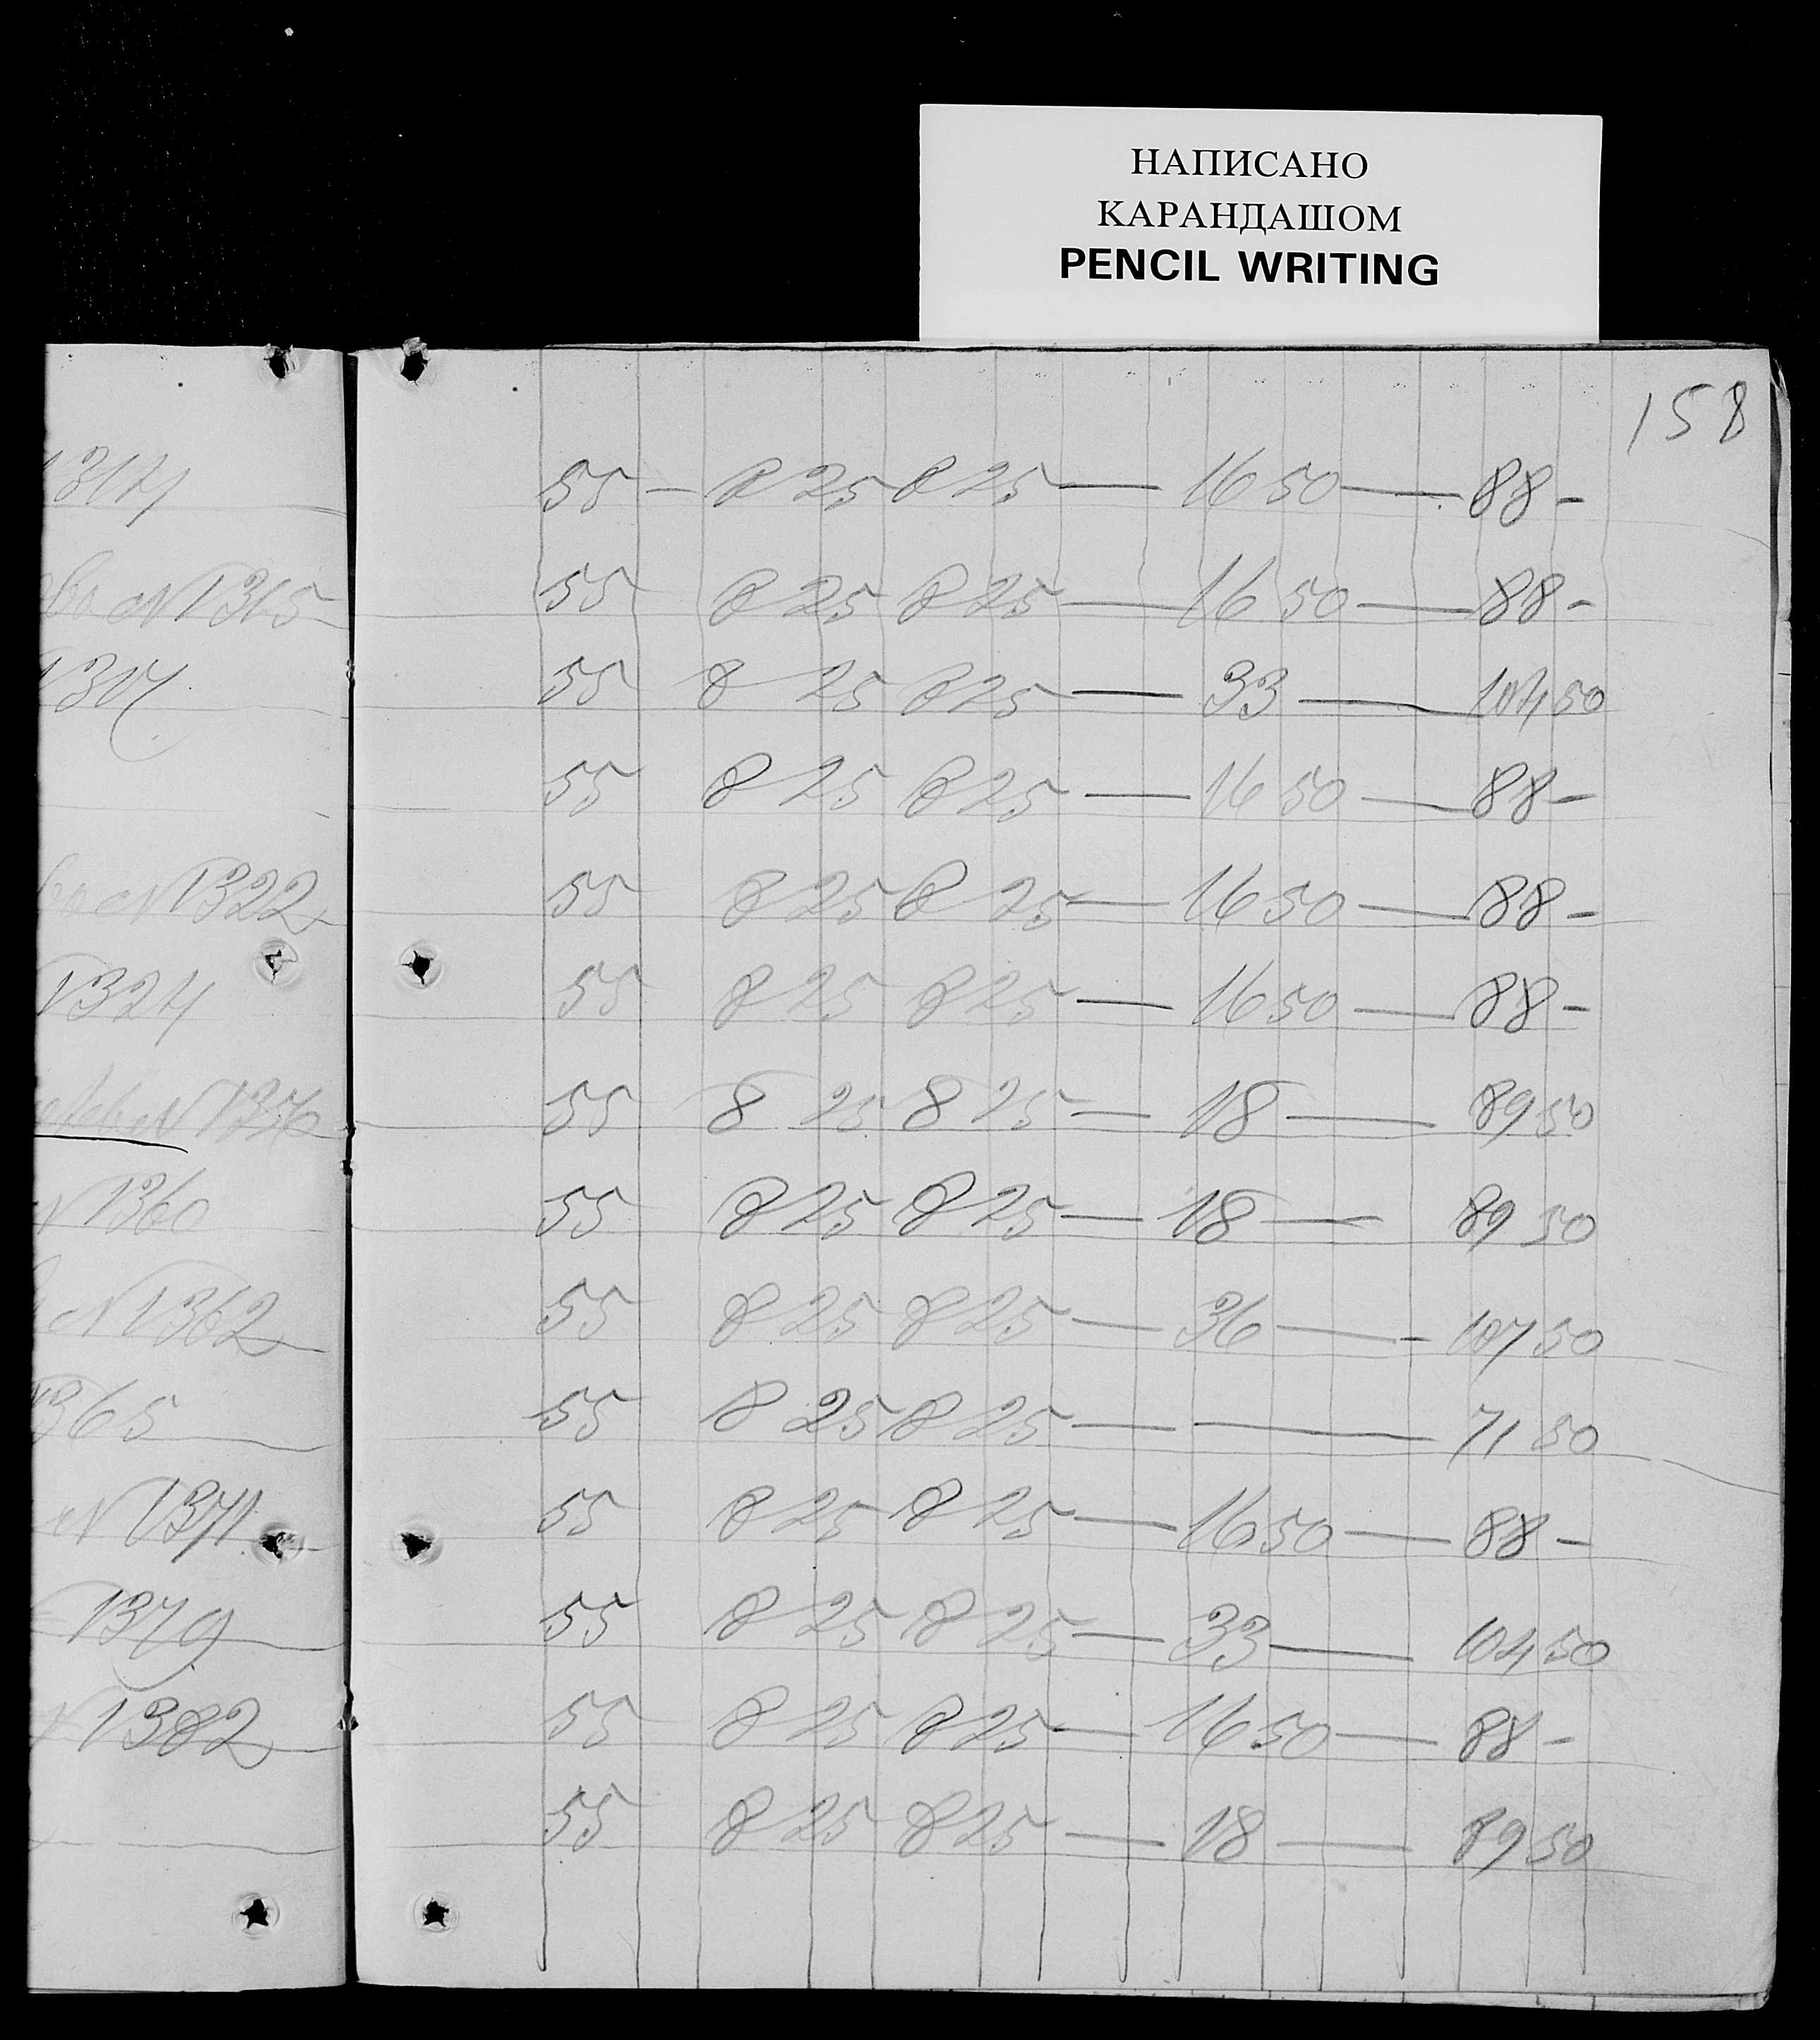 НАПИСАНО
КАРАНДАШОМ
PENCIL WRITING
158
1314
55 — 8 25 8 25 — 16 50 — 88 -
во N 1315
55 8 25 8 25 — 16 50 — 88 -
55 8 25 8 25 — 33 — 104 50
55 8 25 8 25 — 16 50 — 88 -
N 1322
55 8 25 8 25 — 16 50 — 88 -
N 1324
55 8 25 8 25 — 16 50 — 88 -
55 8 25 8 25 — 18 — 89 50
N 1360
55 8 25 8 25 — 18 — 89 50
N 1362
55 8 25 8 25 — 36 — 107 50
1365
55 8 25 8 25 — — 71 50
N 1371
55 8 25 8 25 — 16 50 — 88 -
1379
55 8 25 8 25 — 33 — 104 50
N 1382
55 8 25 8 25 — 16 50 — 88 -
55 8 25 8 25 — 18 — 89 50